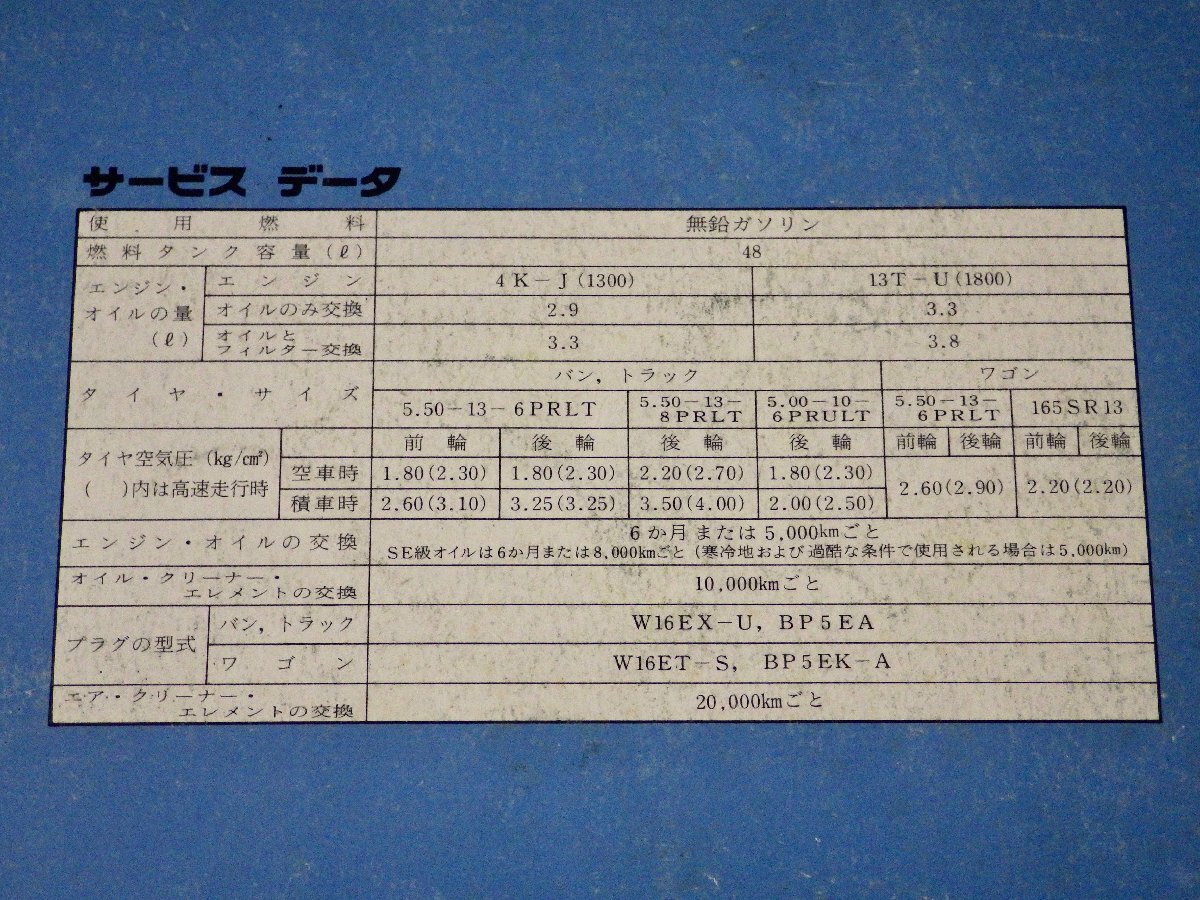 サービス データ
使用燃料 無鉛ガソリン
燃料タンク容量(ℓ) 48
エンジン・オイルの量(ℓ) エンジン 4K-J(1300) 13T-U(1800)
オイルのみ交換 2.9 3.3
オイルとフィルター交換 3.3 3.8
タイヤ・サイズ バン,トラック ワゴン
5.50-13-6PRLT 5.50-13-8PRLT 5.00-10-6PRULT 5.50-13-6PRLT 165SR13
タイヤ空気圧(kg/cm²) ( )内は高速走行時 前輪 後輪 後輪 後輪 前輪 後輪 前輪 後輪
空車時 1.80(2.30) 1.80(2.30) 2.20(2.70) 1.80(2.30) 2.60(2.90) 2.20(2.20)
積車時 2.60(3.10) 3.25(3.25) 3.50(4.00) 2.00(2.50)
エンジン・オイルの交換 6か月または5,000kmごと
SE級オイルは6か月または8,000kmごと(寒冷地および過酷な条件で使用される場合は5,000km)
オイル・クリーナー・エレメントの交換 10,000kmごと
プラグの型式 バン,トラック W16EX-U, BP5EA
ワゴン W16ET-S, BP5EK-A
エア・クリーナー・エレメントの交換 20,000kmごと